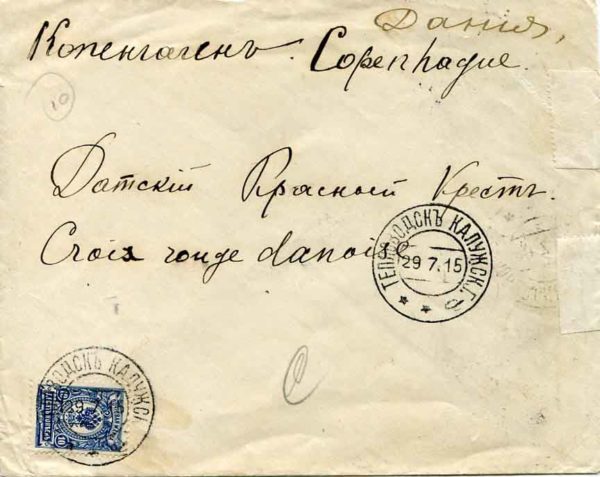 Дания,
Копенгагенъ. Copenhague.
10
Датскій Красный Крестъ.
Croix rouge danoise
КАЛУЖСК.Г.
29 7.15
ВОДСКЪ КАЛУЖСК
29
10